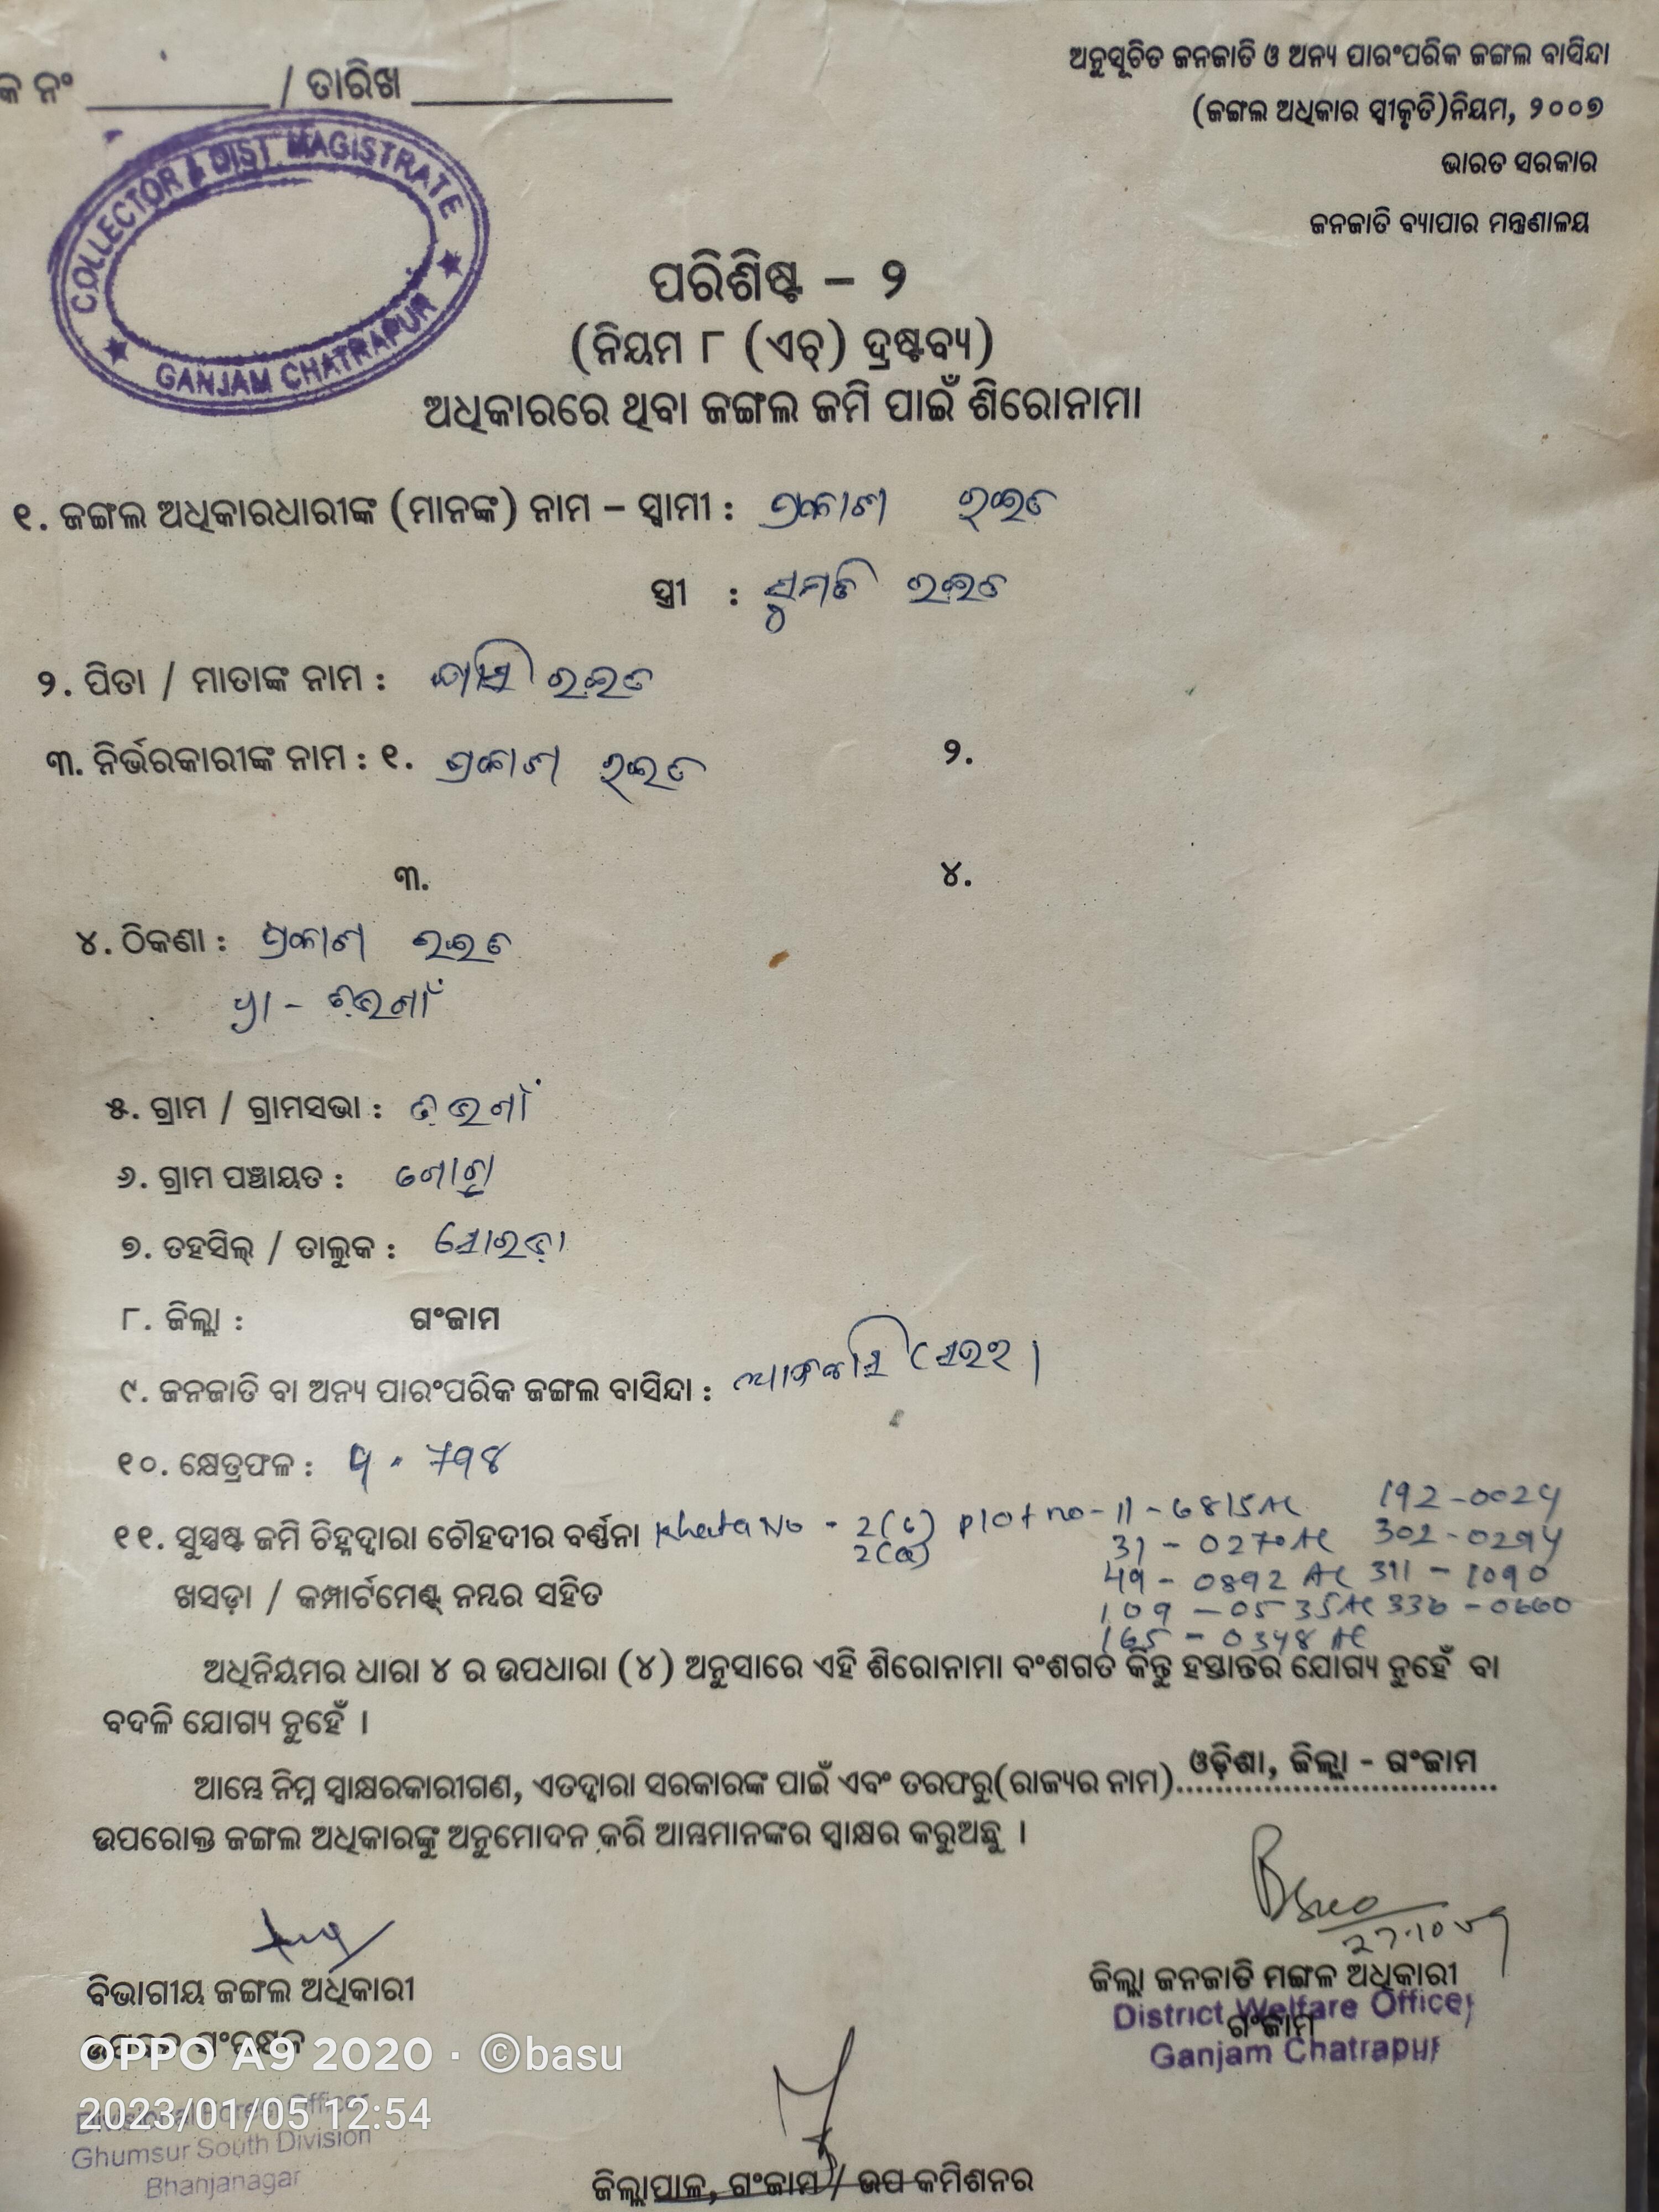 କ ନଂ ________ / ତାରିଖ ________
ଅନୁସୂଚିତ ଜନଜାତି ଓ ଅନ୍ୟ ପାରଂପରିକ ଜଙ୍ଗଲ ବାସିନ୍ଦା
(ଜଙ୍ଗଲ ଅଧିକାର ସ୍ୱୀକୃତି)ନିୟମ, ୨୦୦୭
ଭାରତ ସରକାର
ଜନଜାତି ବ୍ୟାପାର ମନ୍ତ୍ରଣାଳୟ
COLLECTOR & DIST MAGISTRATE
GANJAM CHATRAPUR
ପରିଶିଷ୍ଟ – ୨
(ନିୟମ ୮ (ଏଚ୍) ଦ୍ରଷ୍ଟବ୍ୟ)
ଅଧିକାରରେ ଥିବା ଜଙ୍ଗଲ ଜମି ପାଇଁ ଶିରୋନାମା
୧. ଜଙ୍ଗଲ ଅଧିକାରଧାରୀଙ୍କ (ମାନଙ୍କ) ନାମ – ସ୍ୱାମୀ : ପ୍ରକାଶ ରଇତ
ସ୍ତ୍ରୀ : ସୁମତି ରଇତ
୨. ପିତା / ମାତାଙ୍କ ନାମ : ରଇତ
୩. ନିର୍ଭରକାରୀଙ୍କ ନାମ : ୧. ପ୍ରକାଶ ରଇତ ୨.
୩. ୪.
୪. ଠିକଣା : ପ୍ରକାଶ ରଇତ
୫. ଗ୍ରାମ / ଗ୍ରାମସଭା :
୬. ଗ୍ରାମ ପଞ୍ଚାୟତ :
୭. ତହସିଲ୍ / ତାଲୁକ : ସୋରଡ଼ା
୮. ଜିଲ୍ଲା : ଗଂଜାମ
୯. ଜନଜାତି ବା ଅନ୍ୟ ପାରଂପରିକ ଜଙ୍ଗଲ ବାସିନ୍ଦା :
୧୦. କ୍ଷେତ୍ରଫଳ :
୧୧. ସୁସ୍ପଷ୍ଟ ଜମି ଚିହ୍ନଦ୍ୱାରା ଚୌହଦୀର ବର୍ଣ୍ଣନା Khata No - plot no - 11 - 6815 AC 192 - 0024
31 - 0270 AC 302 - 0294
49 - 0892 AC 311 - 1090
ଖସଡ଼ା / କମ୍ପାର୍ଟମେଣ୍ଟ୍ ନମ୍ବର ସହିତ
109 - 0535 AC 336 - 0660
165 - 0348 AC
ଅଧିନିୟମର ଧାରା ୪ ର ଉପଧାରା (୪) ଅନୁସାରେ ଏହି ଶିରୋନାମା ବଂଶଗତ କିନ୍ତୁ ହସ୍ତାନ୍ତର ଯୋଗ୍ୟ ନୁହେଁ ବା
ବଦଳି ଯୋଗ୍ୟ ନୁହେଁ ।
ଆମ୍ଭେ ନିମ୍ନ ସ୍ୱାକ୍ଷରକାରୀଗଣ, ଏତଦ୍ଵାରା ସରକାରଙ୍କ ପାଇଁ ଏବଂ ତରଫରୁ(ରାଜ୍ୟର ନାମ) ଓଡ଼ିଶା, ଜିଲ୍ଲା - ଗଂଜାମ
ଉପରୋକ୍ତ ଜଙ୍ଗଲ ଅଧିକାରଙ୍କୁ ଅନୁମୋଦନ କରି ଆମ୍ଭମାନଙ୍କର ସ୍ୱାକ୍ଷର କରୁଅଛୁ ।
ବିଭାଗୀୟ ଜଙ୍ଗଲ ଅଧିକାରୀ
ଜିଲ୍ଲା ଜନଜାତି ମଙ୍ଗଳ ଅଧିକାରୀ
ଗଂଜାମ
District Welfare Officer
Ganjam Chatrapur
OPPO A9 2020 · ©basu
2023/01/05 12:54
Divisional Forest Officer
Ghumsur South Division
Bhanjanagar
ଜିଲ୍ଲାପାଳ, ଗଂଜାମ / ଉପ କମିଶନର